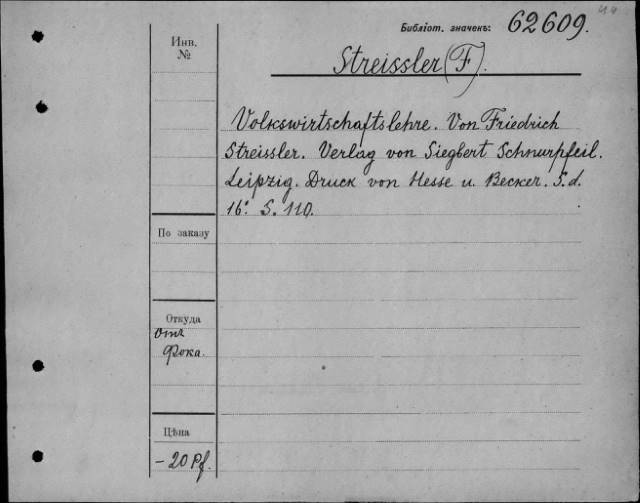 Библіот. значекъ: 62609.
Инв.
№
Streissler (F).
Volkswirtschaftslehre. Von Friedrich
Streissler. Verlag von Siegbert Schnurpfeil.
Leipzig. Druck von Hesse u. Becker. S. d.
16º. S. 110.
По заказу
Откуда
Отъ
Фока.
Цѣна
- 20 Pf.